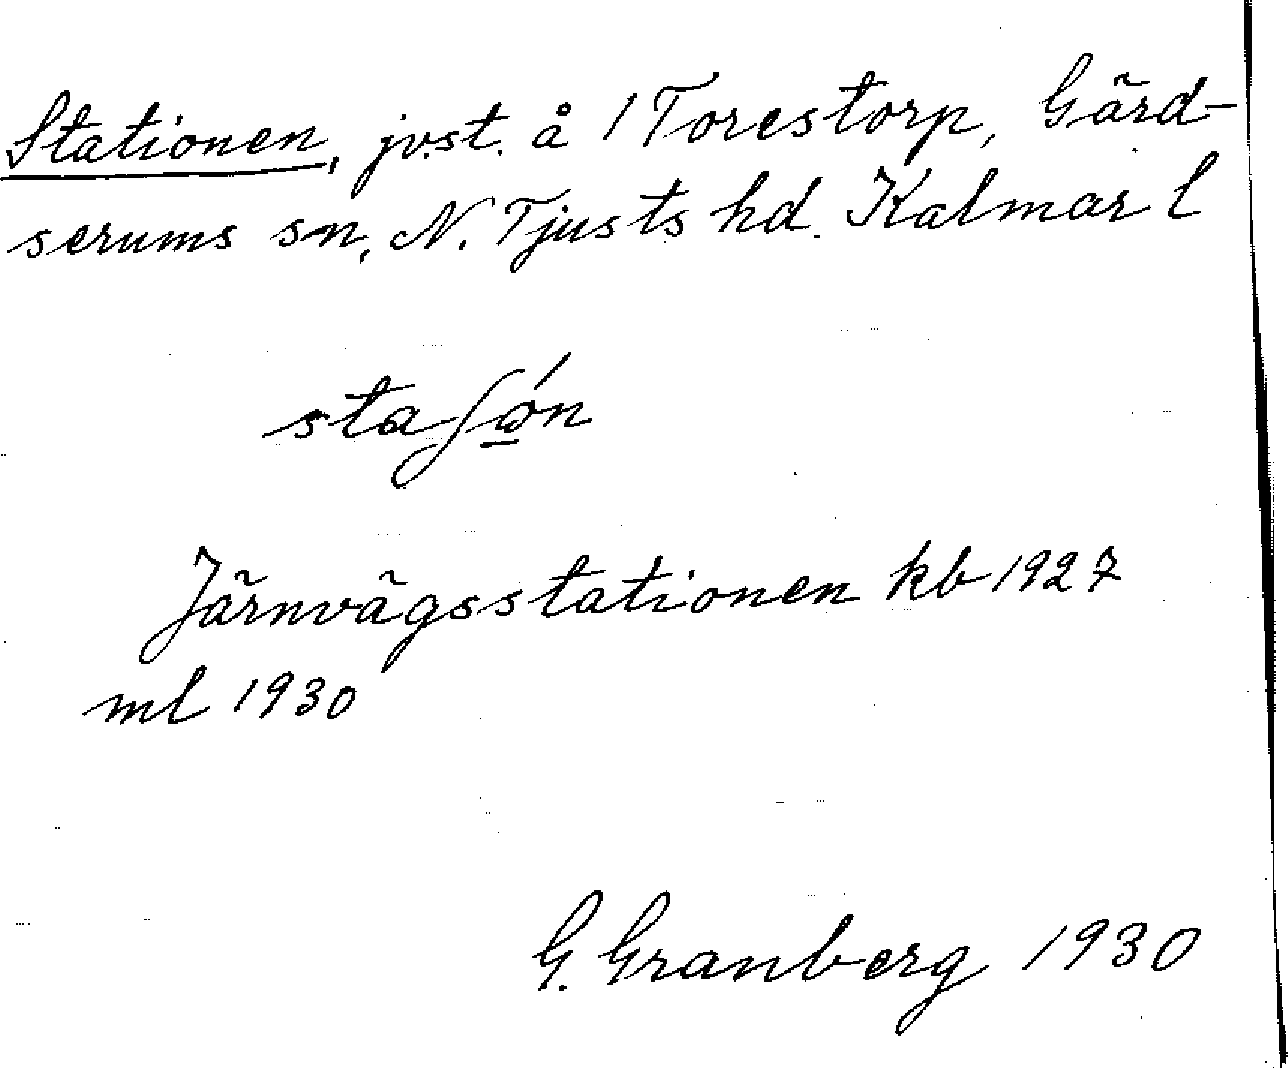 Stationen, jvst. å 1 Torestorp, Gärd-
serums sn, N. Tjusts hd. Kalmar l
staʃǫ́n
Järnvägsstationen kb 1927
ml 1930
G. Granberg 1930